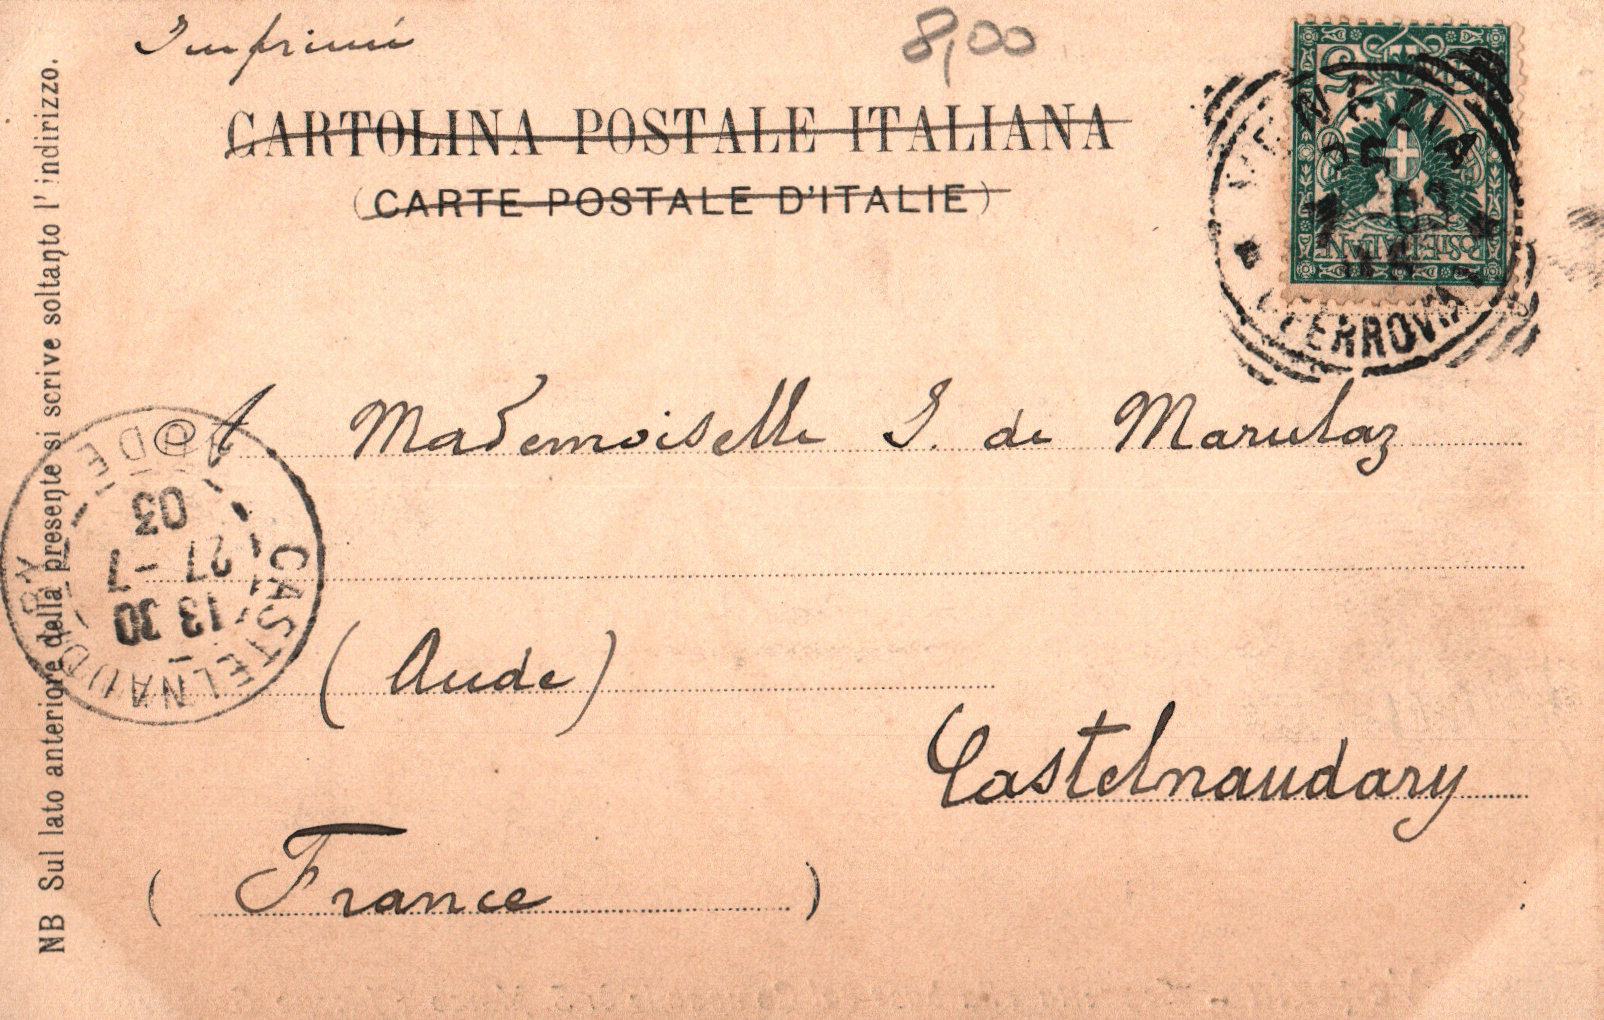 Imprimé
8,00
CARTOLINA POSTALE ITALIANA
(CARTE POSTALE D'ITALIE)
NB Sul lato anteriore della presente si scrive soltanto l'indirizzo.
VENEZIA
FERROVIA
POSTE ITALIANE
A Mademoiselle S. de Marulaz
(Aude)
Castelnaudary
(France)
CASTELNAUDARY
AUDE
13 30
27 -7
03